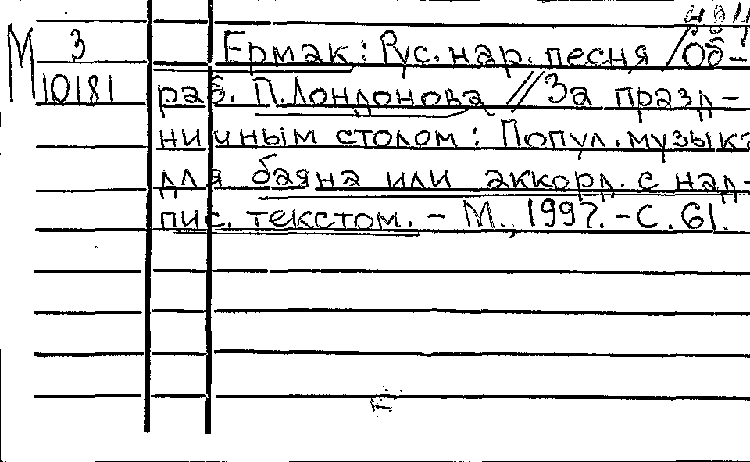 М 3
10181
Ермак: Рус. нар. песня / Об-
раб. П. Лондонова // За празд-
ничным столом: Попул. музыка
для баяна или аккорд. с над-
пис. текстом. – М., 1997. – С. 61.